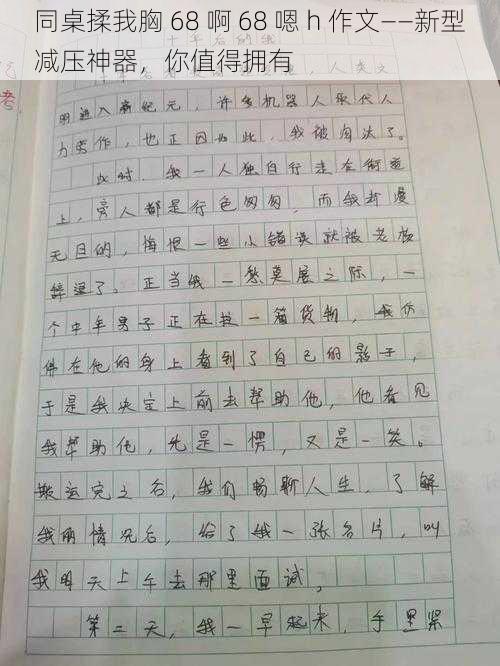 同桌揉我胸 68 啊 68 嗯 h 作文——新型
减压神器，你值得拥有
十年后的我
人类文
明进入新纪元，许多机器人取代人
力劳作，也正因如此，我被淘汰了。
此时，我一人独自行走在街道
上，旁人都是行色匆匆，而我却漫
无目的，悔恨一些小错误就被老板
辞退了。正当我一愁莫展之际，一
个中年男子正在拉一箱货物，我仿
佛在他的身上看到了自己的影子，
于是我决定上前去帮助他，他看见
我帮助他，先是一愣，又是一笑。
搬运完之后，我们畅聊人生，了解
我的情况后，给了我一张名片，叫
我明天上午去那里面试，
第二天，我一早起来，手里紧
考